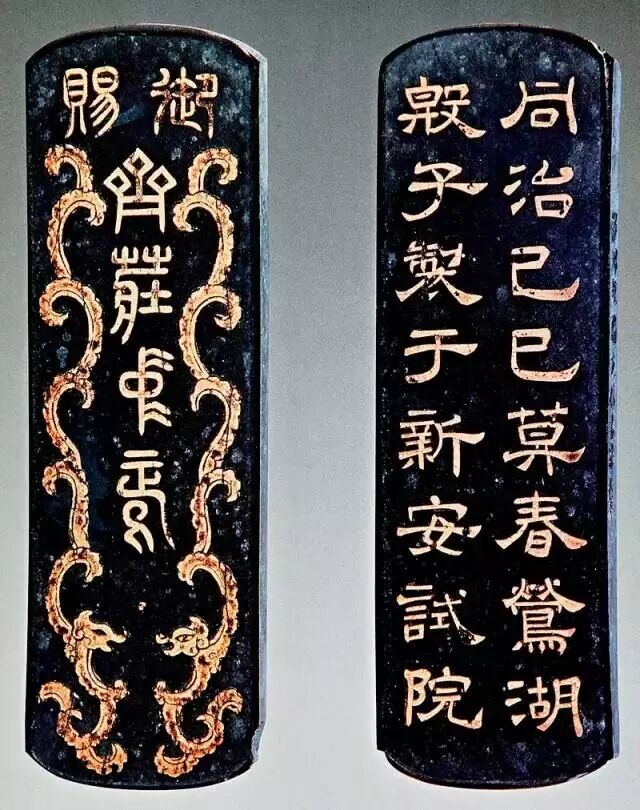 御賜
齊莊中正
同治己巳莫春鶯湖
殷子製于新安試院